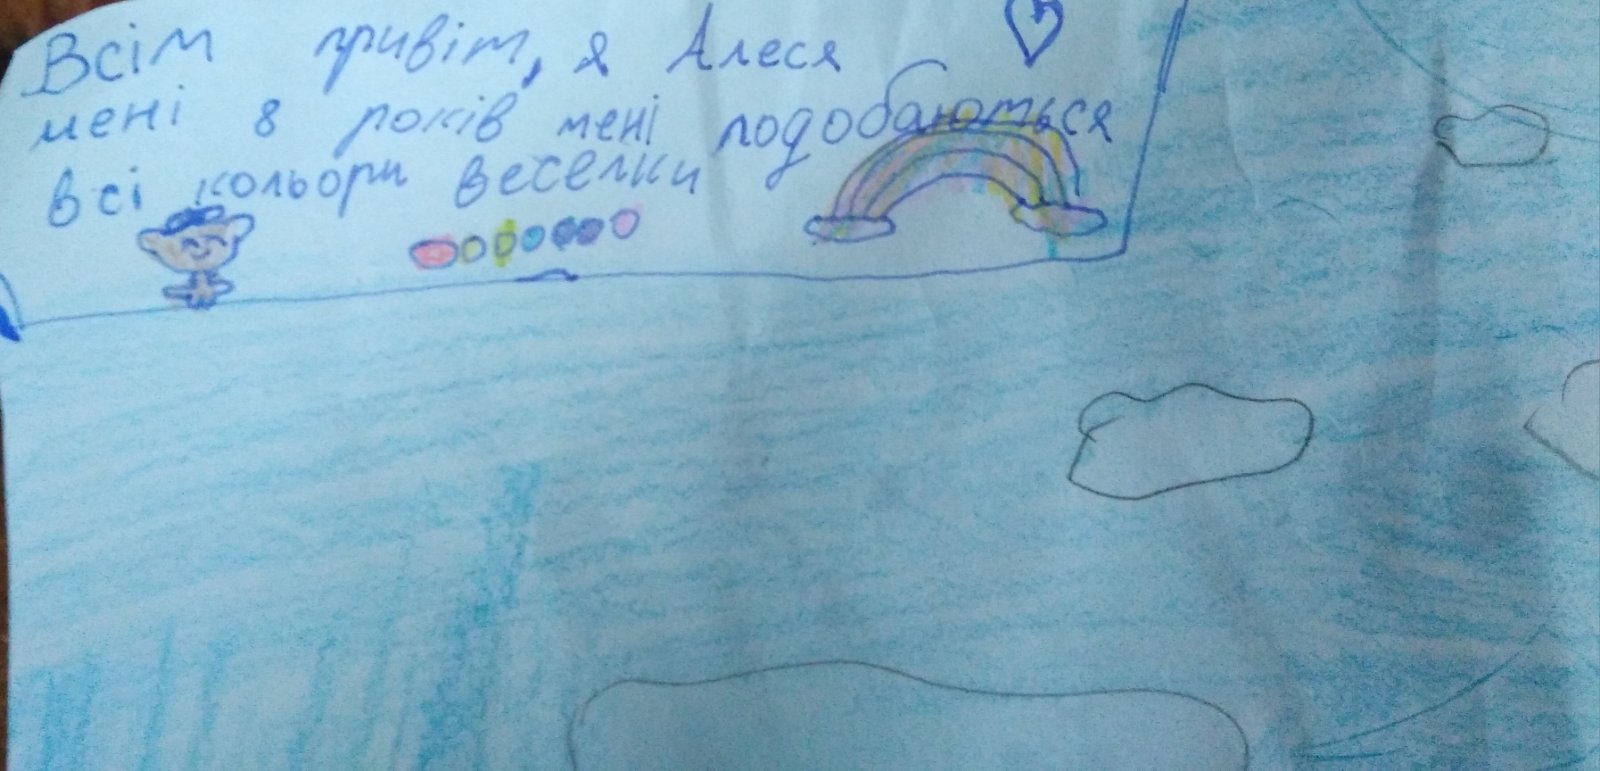 Всім привіт, я Алеся
мені 8 років мені подобаються
всі кольори веселки